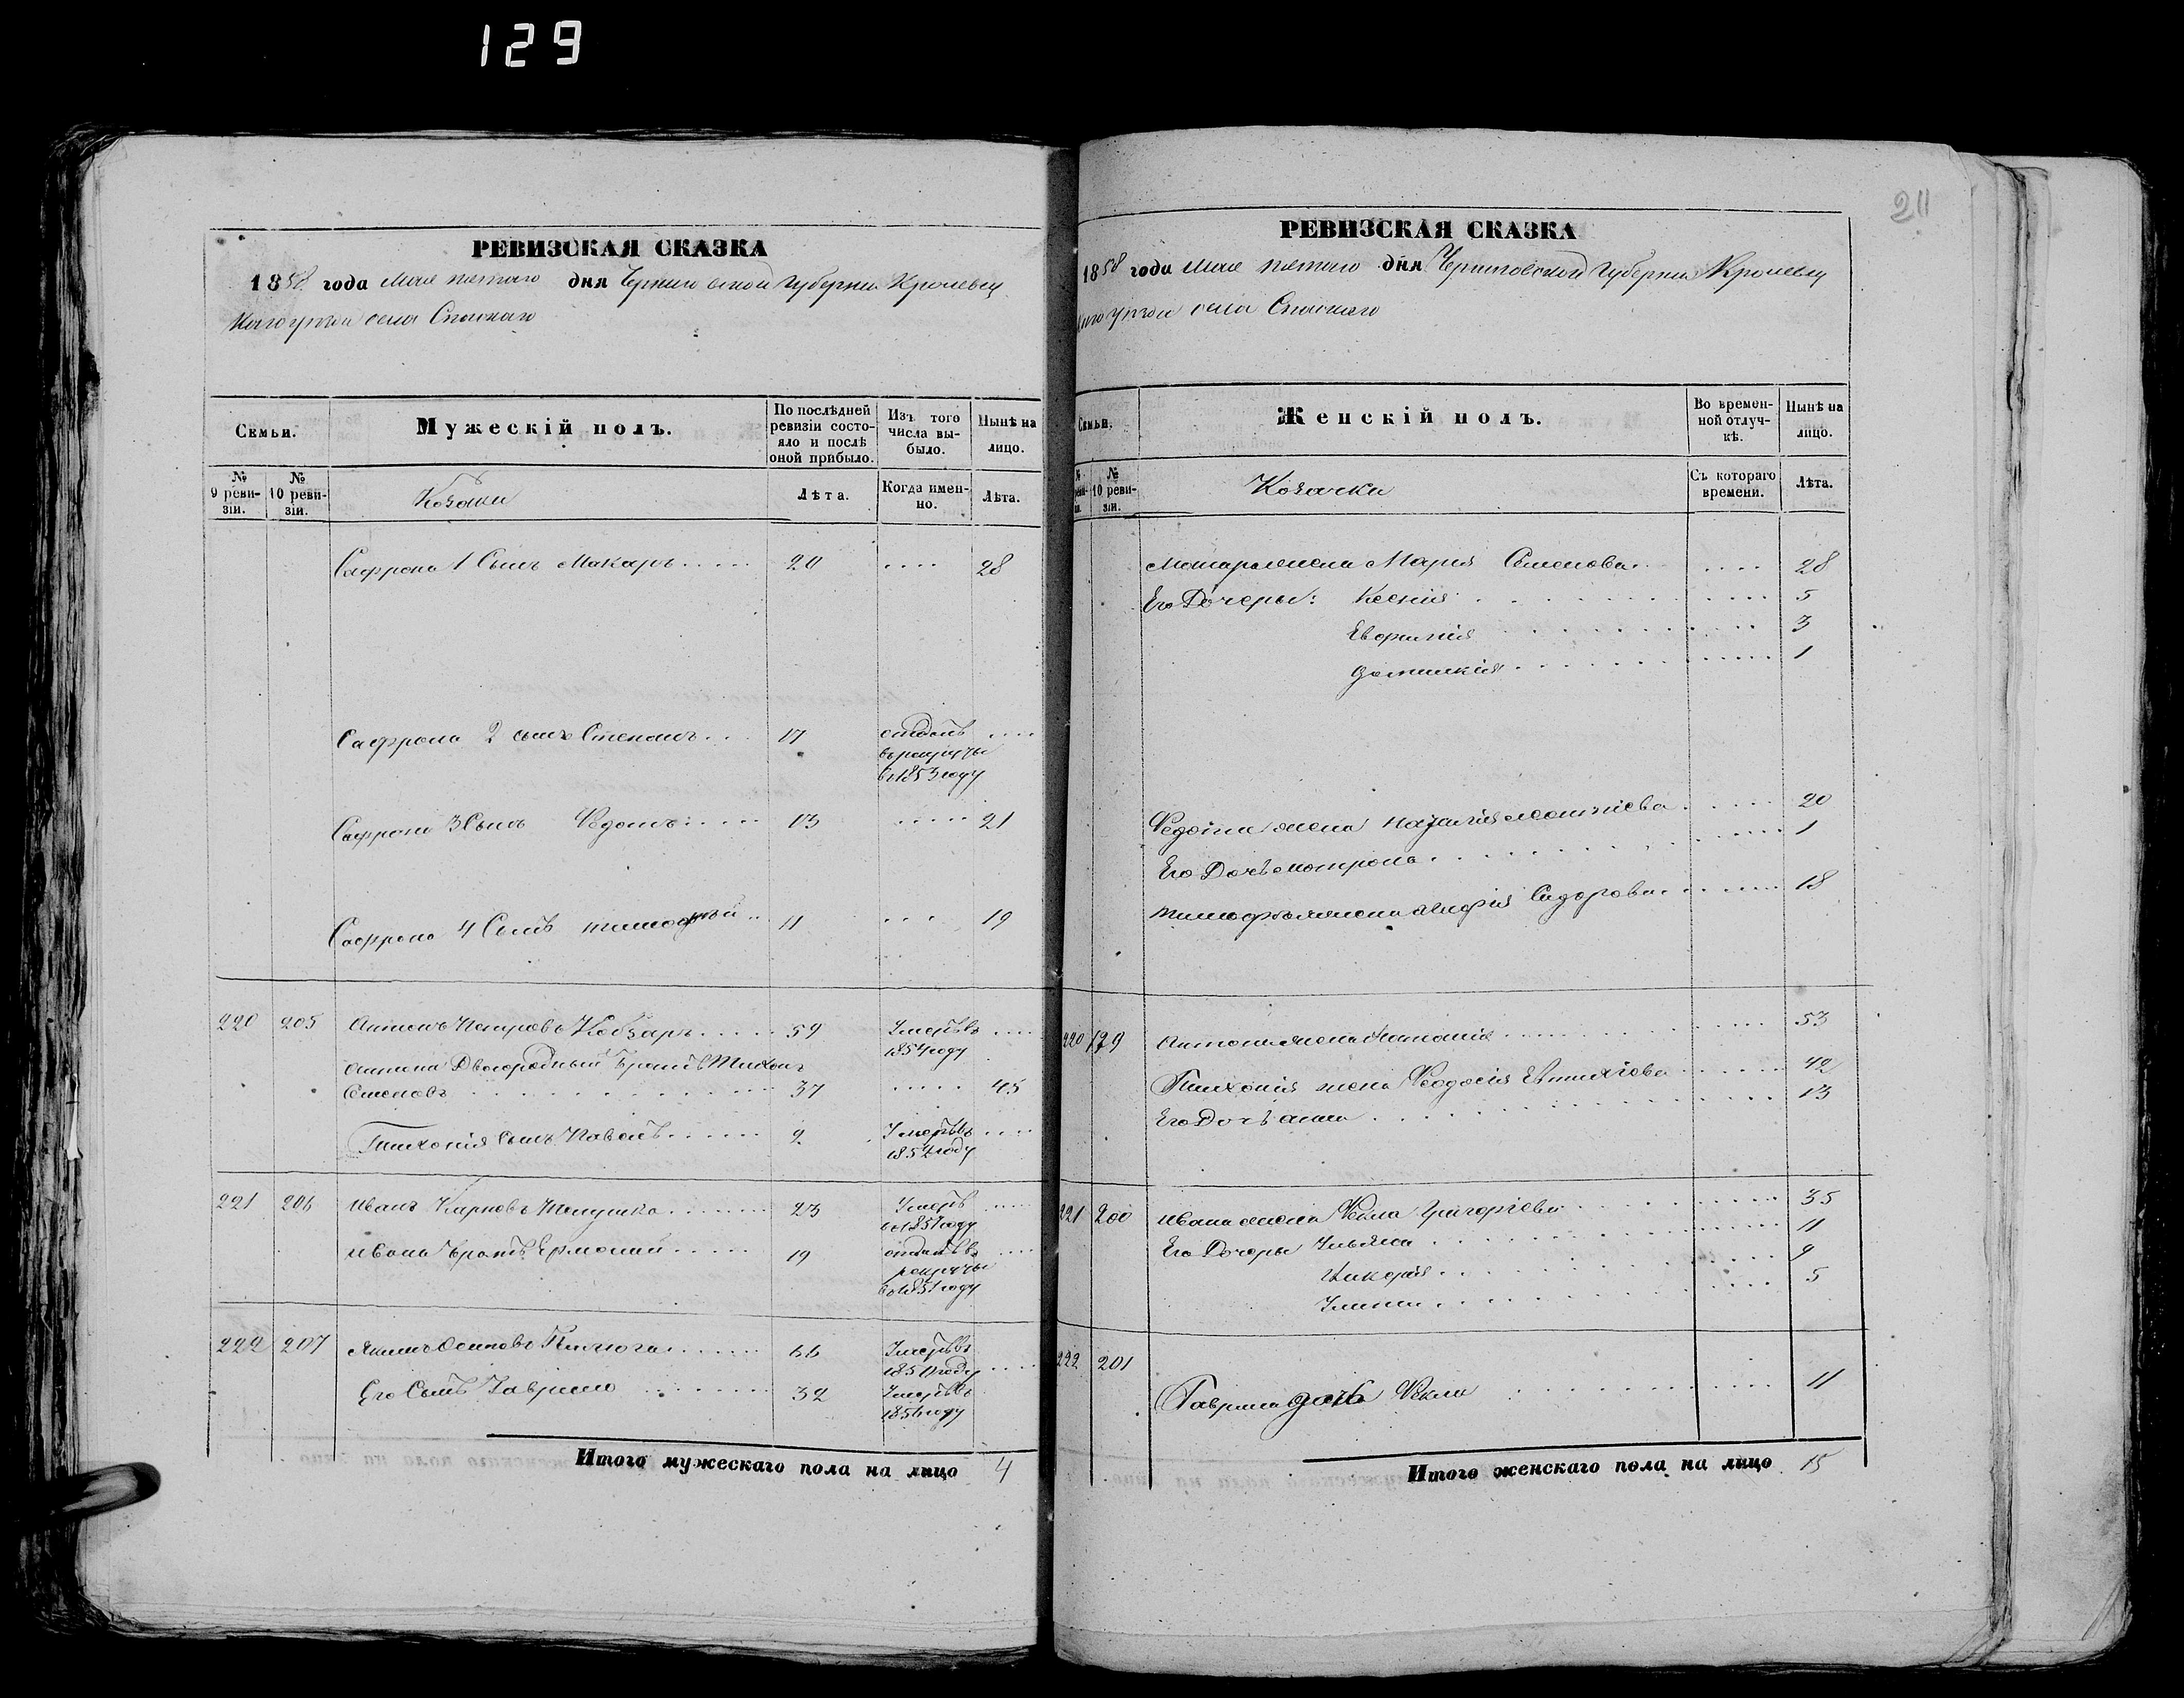 129
211
РЕВИЗСКАЯ СКАЗКА
1858 года Мая пятаго дня Черниговской Губернии Кролевец
каго уѣзда села Спаскаго
Семьи.
Мужескій полъ.
По послѣдней ревизіи состояло и послѣ оной прибыло.
Изъ того числа выбыло.
Нынѣ на лицо.
№ 9 ревизіи.
№ 10 ревизіи.
Козаки
Лѣта.
Когда именно.
Лѣта.
Сафрона 1 Сынъ Макаръ 20 28
Сафрона 2 сынъ Степанъ 17 отданъ
въ рекруты
въ 1853 году
Сафрона 3 Сынъ Федотъ 13 21
Сафрона 4 Сынъ тимофѣй 11 19
220 205 Антонъ Петровъ Кобзарь 59 Умеръ въ
1854 году
Антона Двоюродный Братъ Тихонъ
Семеновъ 37 45
Тихонія Сынъ Павелъ 2 Умеръ въ
1852 году
221 206 Иванъ Карповъ 23 Умеръ
въ 1857 году
Ивана Братъ Ермолай 19 отданъ въ
рекруты
въ 1851 году
222 207 Якимъ Осиповъ 66 Умеръ въ
1850 году
Его Сынъ Гаврило 32 Умеръ въ
1856 году
Итого мужескаго пола на лицо 4
РЕВИЗСКАЯ СКАЗКА
1858 года Мая пятаго дня Черниговской Губернии Кролевец
каго уѣзда села Спаскаго
Семьи.
Женскій полъ.
Во временной отлучкѣ.
Нынѣ на лицо.
№ 10 ревизіи.
Козачки
Съ котораго времени.
Лѣта.
Макара жена Мария Семенова 28
Его Дочеры: Ксения 5
3
1
Федота жена Наталия 20
Его Дочь мотрона 1
Тимофѣя жена Сидорова 18
220 199 Антона жена 53
Тихонія жена Феодосія Евтихіева 42
Его Дочь анна 13
221 200 Ивана жена Фекла Григоріева 35
Его Дочеры Ульяна 11
9
5
222 201
Гаврила дочь Фекла 11
Итого женскаго пола на лицо 15